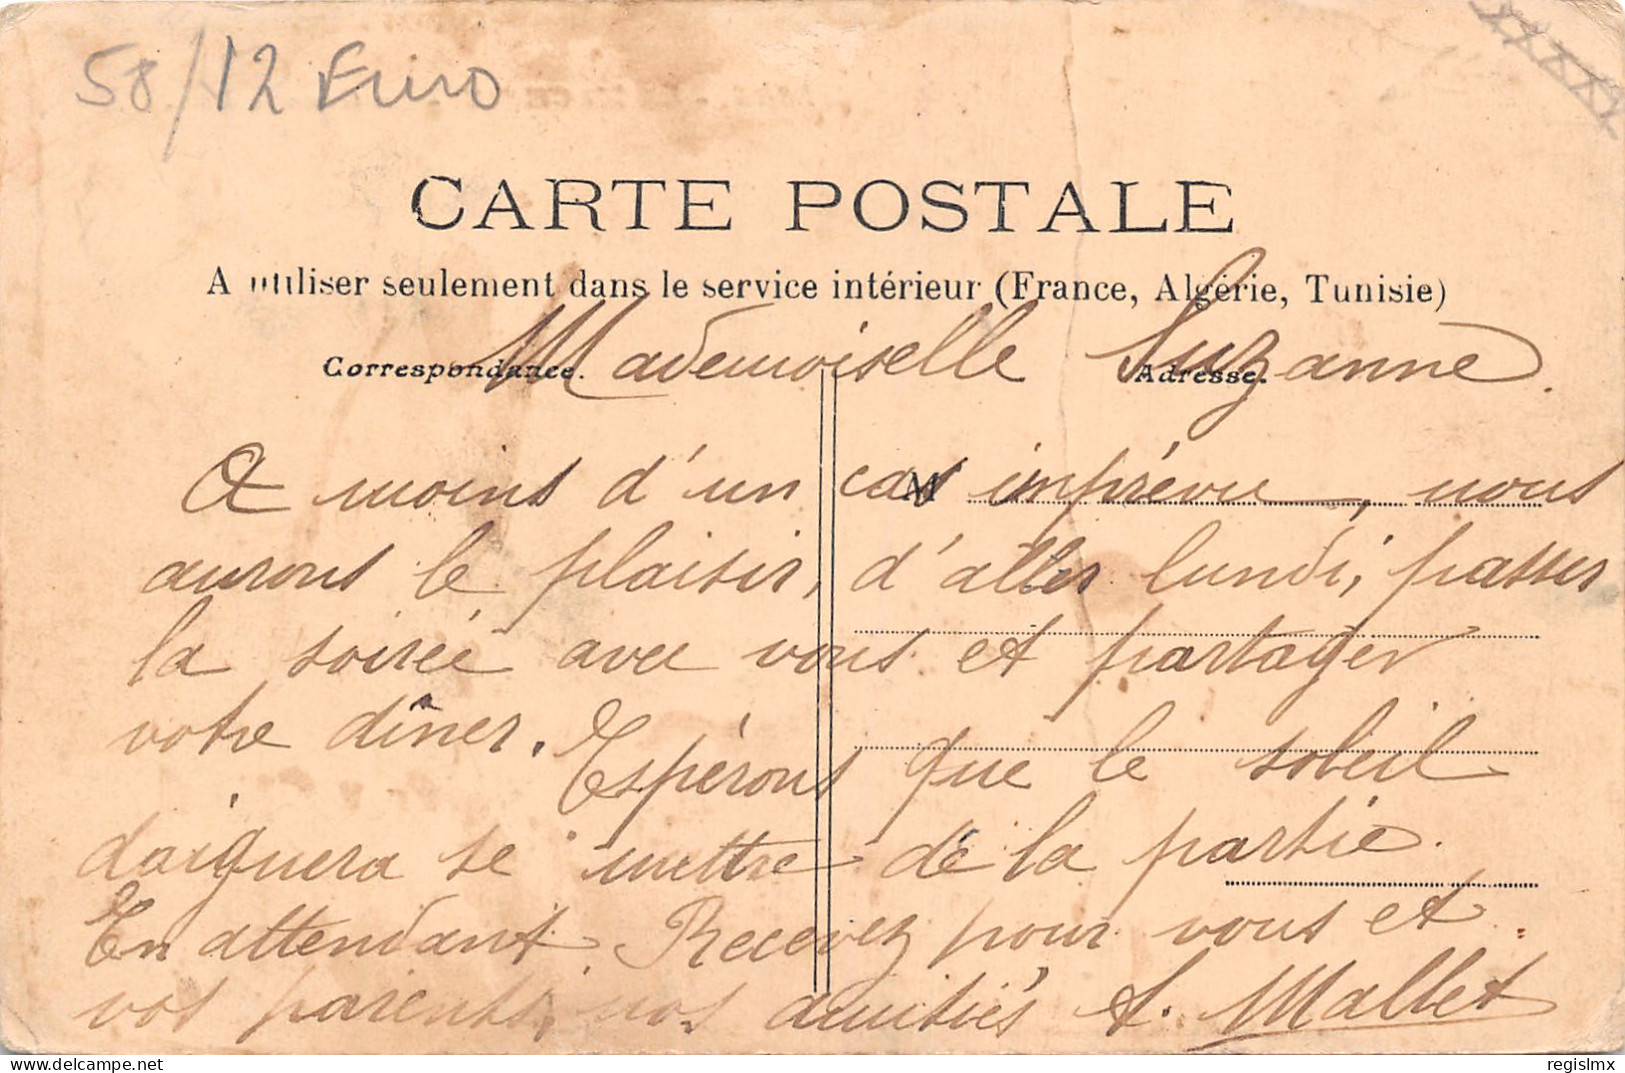 58/12 Euro
CARTE POSTALE
A utiliser seulement dans le service intérieur (France, Algérie, Tunisie)
Correspondance. Adresse.
Mademoiselle Suzanne.
M
A moins d'un cas imprévu, nous
aurons le plaisir, d'aller lundi, passer
la soirée avec vous et partager
votre dîner. Espérons que le soleil
daignera se mettre de la partie.
En attendant. Recevez pour vous et
vos parents, nos amitiés A. Mallet
delcampe.net
regislmx